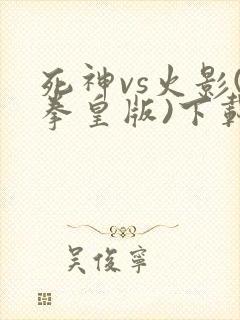 死神vs火影(
拳皇版)下载
吴俊宁